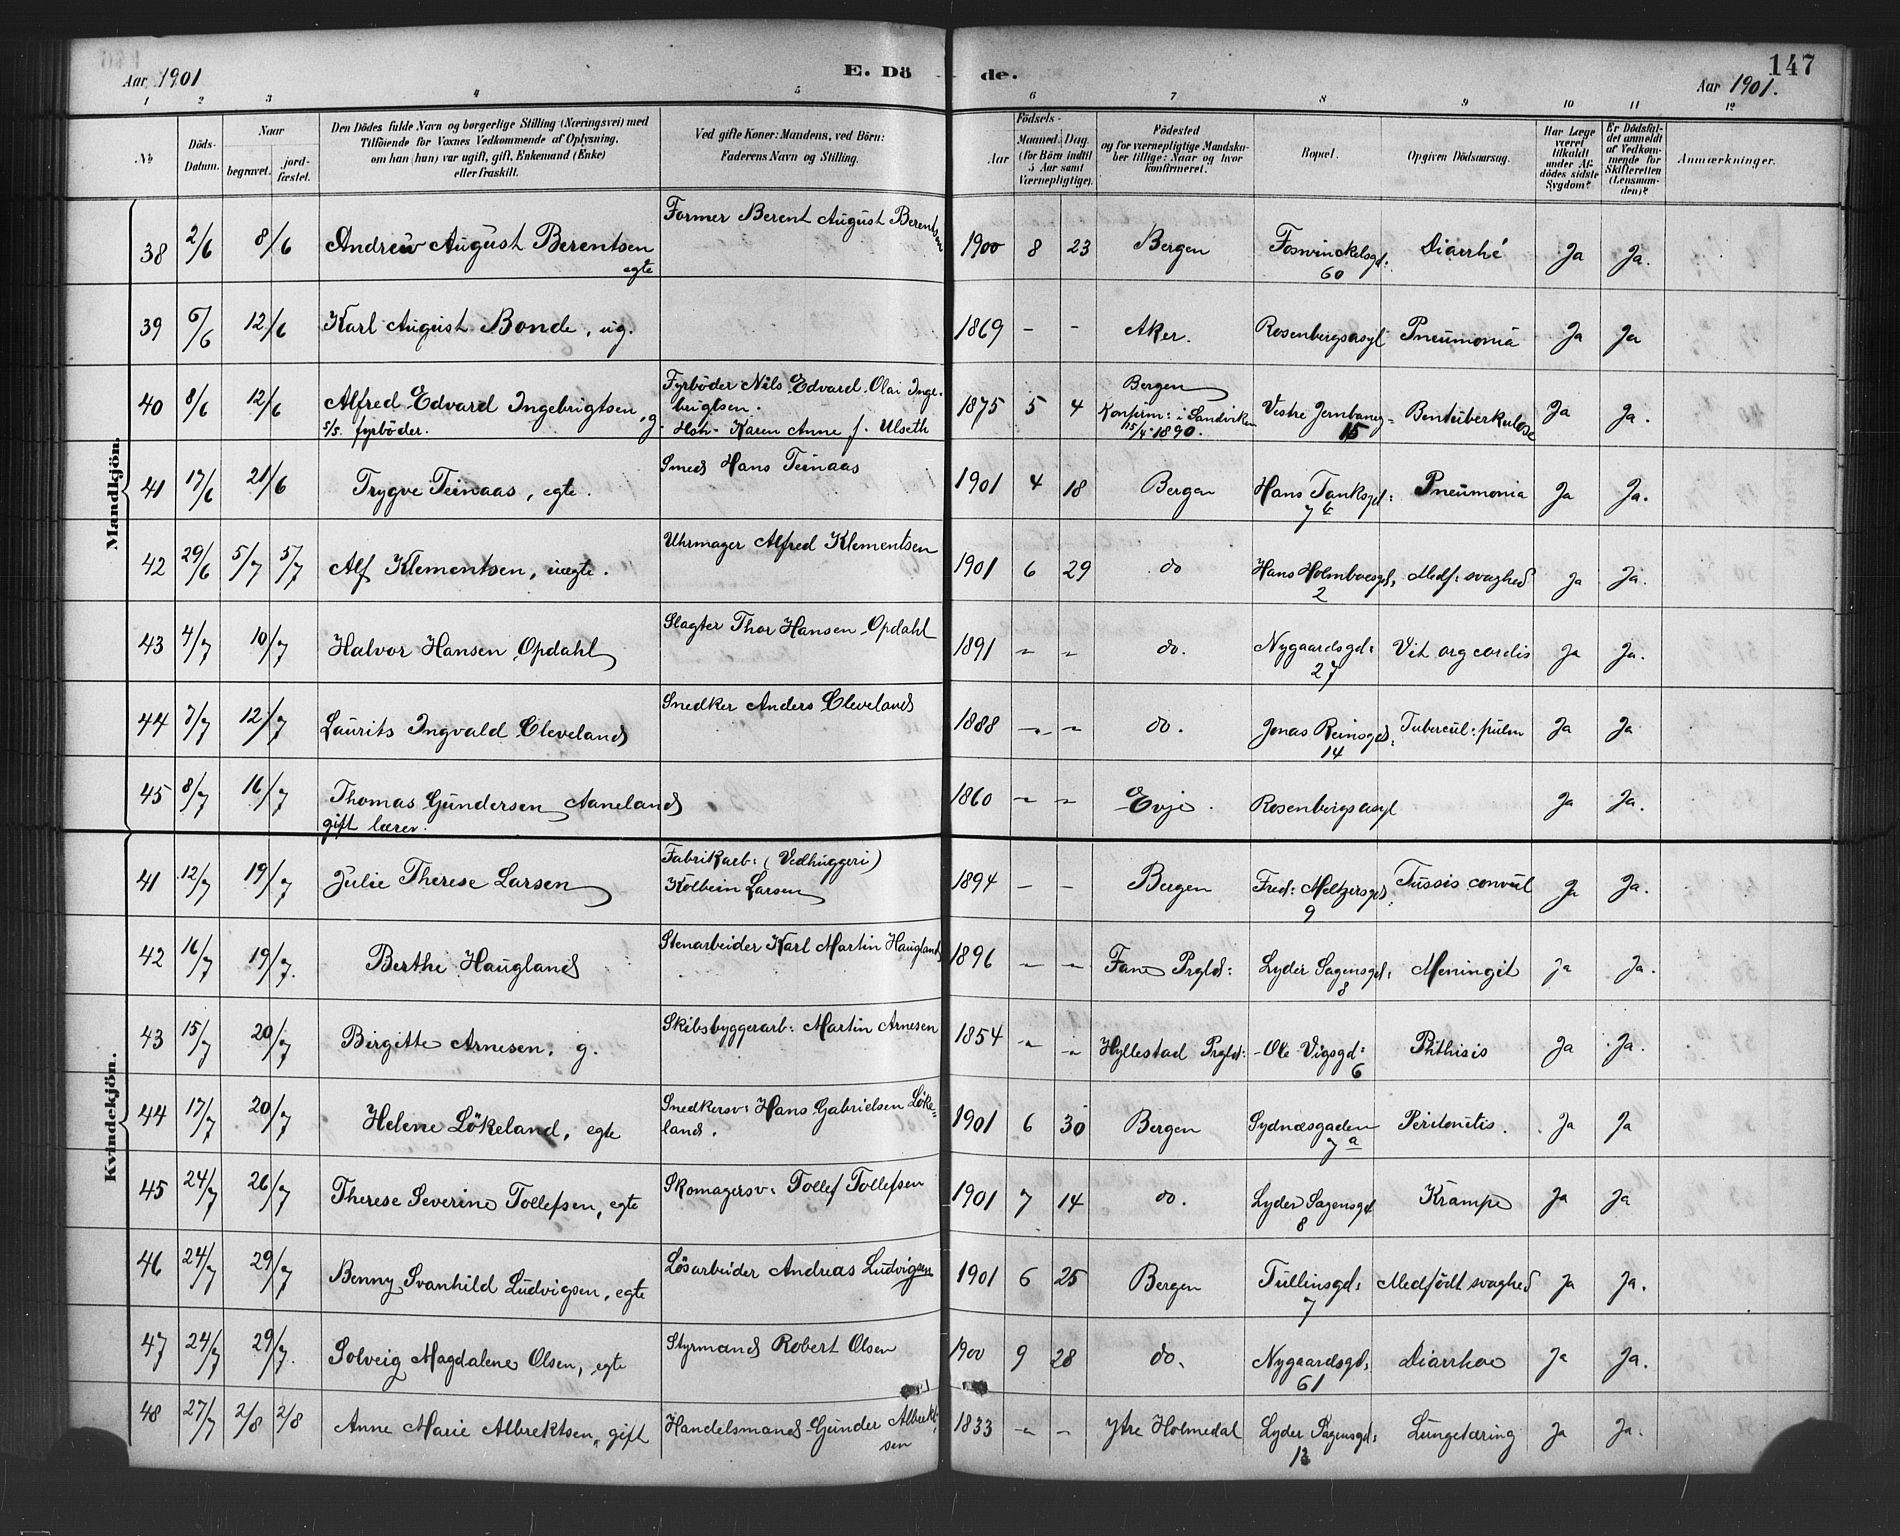 Aar 1901 E. Dö de. Aar 1901. 147
1 2 3 4 5 6 7 8 9 10 11 12
№
Döds-Datum.
Naar
begravet.
jord-fæstet.
Den Dödes fulde Navn og borgerlige Stilling (Næringsvei) med
Tilföiende for Voxnes Vedkommende af Oplysning,
om han (hun) var ugift, gift, Enkemand (Enke)
eller fraskilt.
Ved gifte Koner: Mandens, ved Börn:
Faderens Navn og Stilling.
Födsels-
Aar
Maaned. Dag.
(for Börn indtil
5 Aar samt
Værnepligtige).
Födested
og for værnepligtige Mandska-
ber tillige: Naar og hvor
konfirmeret.
Bopæl.
Opgiven Dödsaarsag.
Har Læge
været
tilkaldt
under Af-
dödes sidste
Sygdom?
Er Dödsfal-
det anmeldt
af Vedkom-
mende for
Skifteretten
(Lensman-
den)?
Anmærkninger.
Mandkjön.
38 2/6 8/6 Andrew August Berentsen egte Former Berent August Berentsen 1900 8 23 Bergen Fosswinckelsgd: 60 Diarrhé Ja Ja.
39 6/6 12/6 Karl August Bonde, ug. 1869 - - Aker. Rosenbergsasyl Pneumonia Ja Ja
40 8/6 12/6 Alfred Edvard Ingebrigtsen, g. Fyrböder Nils Edvard Olai Inge-
s/s. fyrböder. brigtsen. Hstr. Karen Anne f. Ulseth 1875 5 4 Bergen
Konfirm: i Sandviken 15/4 1890. Vestre Jernbanev- 15 Bentuberkulose Ja Ja.
41 17/6 21/6 Trygve Teinaas, egte. Smed Hans Teinaas 1901 4 18 Bergen Hans Tanksgd: 7 Pneumonia Ja Ja.
42 29/6 5/7 5/7 Alf Klementsen, uægte. Uhrmager Alfred Klementsen 1901 6 29 do Hans Holmboesgd: 2 Medf: svaghed Ja Ja.
43 4/7 10/7 Halvor Hansen Opdahl Slagter Thor Hansen Opdahl 1891 - - do. Nygaardsgd: 27 Vit org cordis Ja Ja.
44 7/7 12/7 Laurits Ingvald Cleveland Snedker Anders Cleveland 1888 - - do. Jonas Reinsgd: 14 Tubercul: pulm Ja Ja
45 8/7 16/7 Thomas Gundersen Aaneland 1860 - - Evje. Rosenbergsasyl Ja Ja.
gift lærer.
Kvindekjön.
41 12/7 19/7 Julie Therese Larsen Fabrikarb: (Vedhuggeri)
Kolbein Larsen 1894 - - Bergen Fred: Meltzersgd. 9 Tussis convul Ja Ja.
42 16/7 19/7. Berthe Haugland Stenarbeider Karl Martin Haugland 1896 - - Fane Prgld: Lyder Sagensgd: 8 Meningit Ja Ja.
43 15/7 20/7 Birgitte Arnesen, g. Skibsbyggerarb: Martin Arnesen 1854 - - Hyllestad Prgld: Ole Vigsgd: 6 Phthisis Ja Ja.
44 17/7 20/7 Helene Lökeland, egte Snedkersv: Hans Gabrielsen Löke-
land. 1901 6 30 Bergen Sydnæsgaden 7 a Peritonitis. Ja Ja
45 24/7 26/7 Therese Severine Tollefsen, egte Skomagersv: Tollef Tollefsen 1901 7 14 do. Lyder Sagensgd 8 Krampe Ja Ja
46 24/7 29/7 Benny Svanhild Ludvigsen, egte Lösarbeider Andreas Ludvigsen 1901 6 25 Bergen Tullinsgd: 7 Medfödt svaghed Ja Ja.
47 24/7 29/7. Solveig Magdalene Olsen, egte Styrmand Robert Olsen 1900 9 28 do. Nygaardsgd: 61 Diarrhoe Ja Ja.
48 27/7 2/8 2/8 Anne Marie Albrektsen, gift Handelsmand Gunder Albrekt-
sen 1833 - - Ytre Holmedal Lyder Sagensgd: 13 Lungetæring Ja Ja.